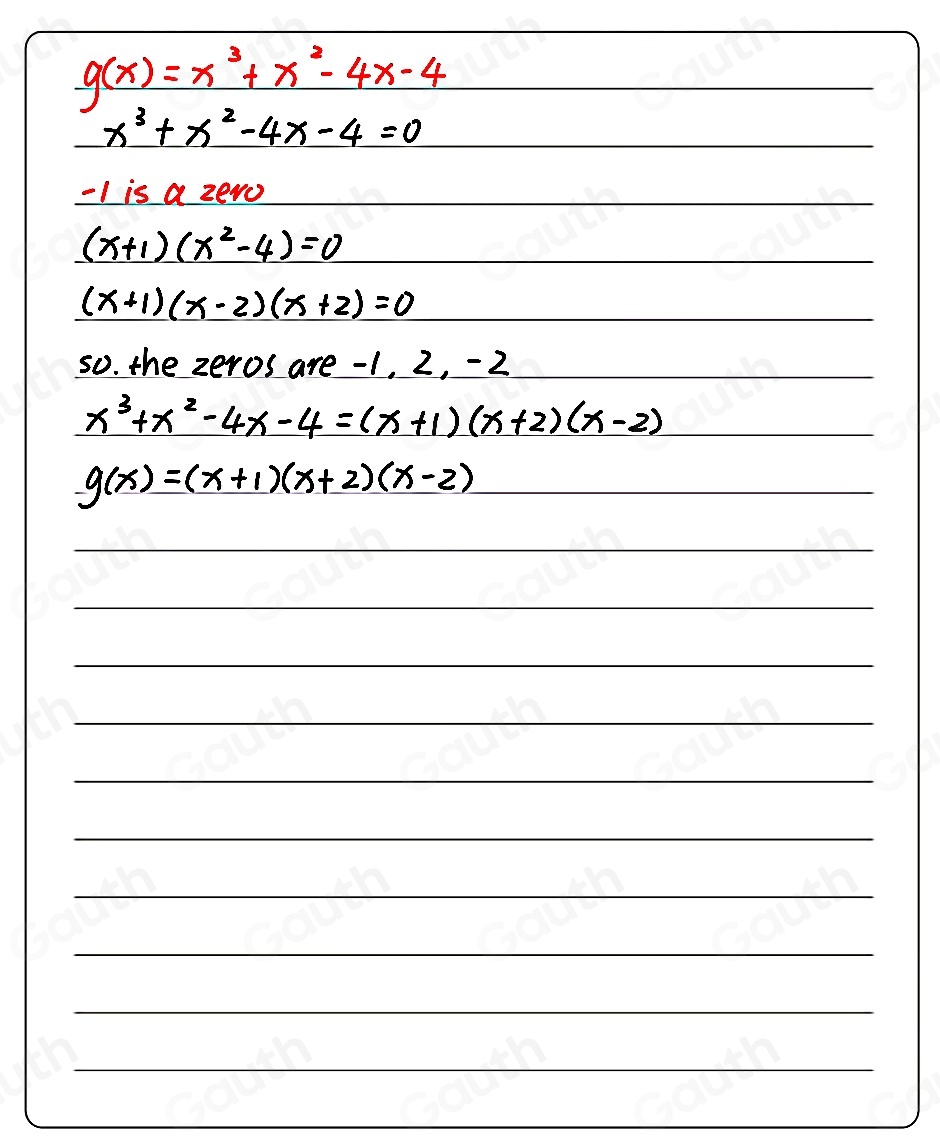 g(x) = x³ + x² - 4x - 4
x³ + x² - 4x - 4 = 0
-1 is a zero
(x+1)(x²-4)=0
(x+1)(x-2)(x+2)=0
so. the zeros are -1, 2, -2
x³+x²-4x-4=(x+1)(x+2)(x-2)
g(x)=(x+1)(x+2)(x-2)
Gauth